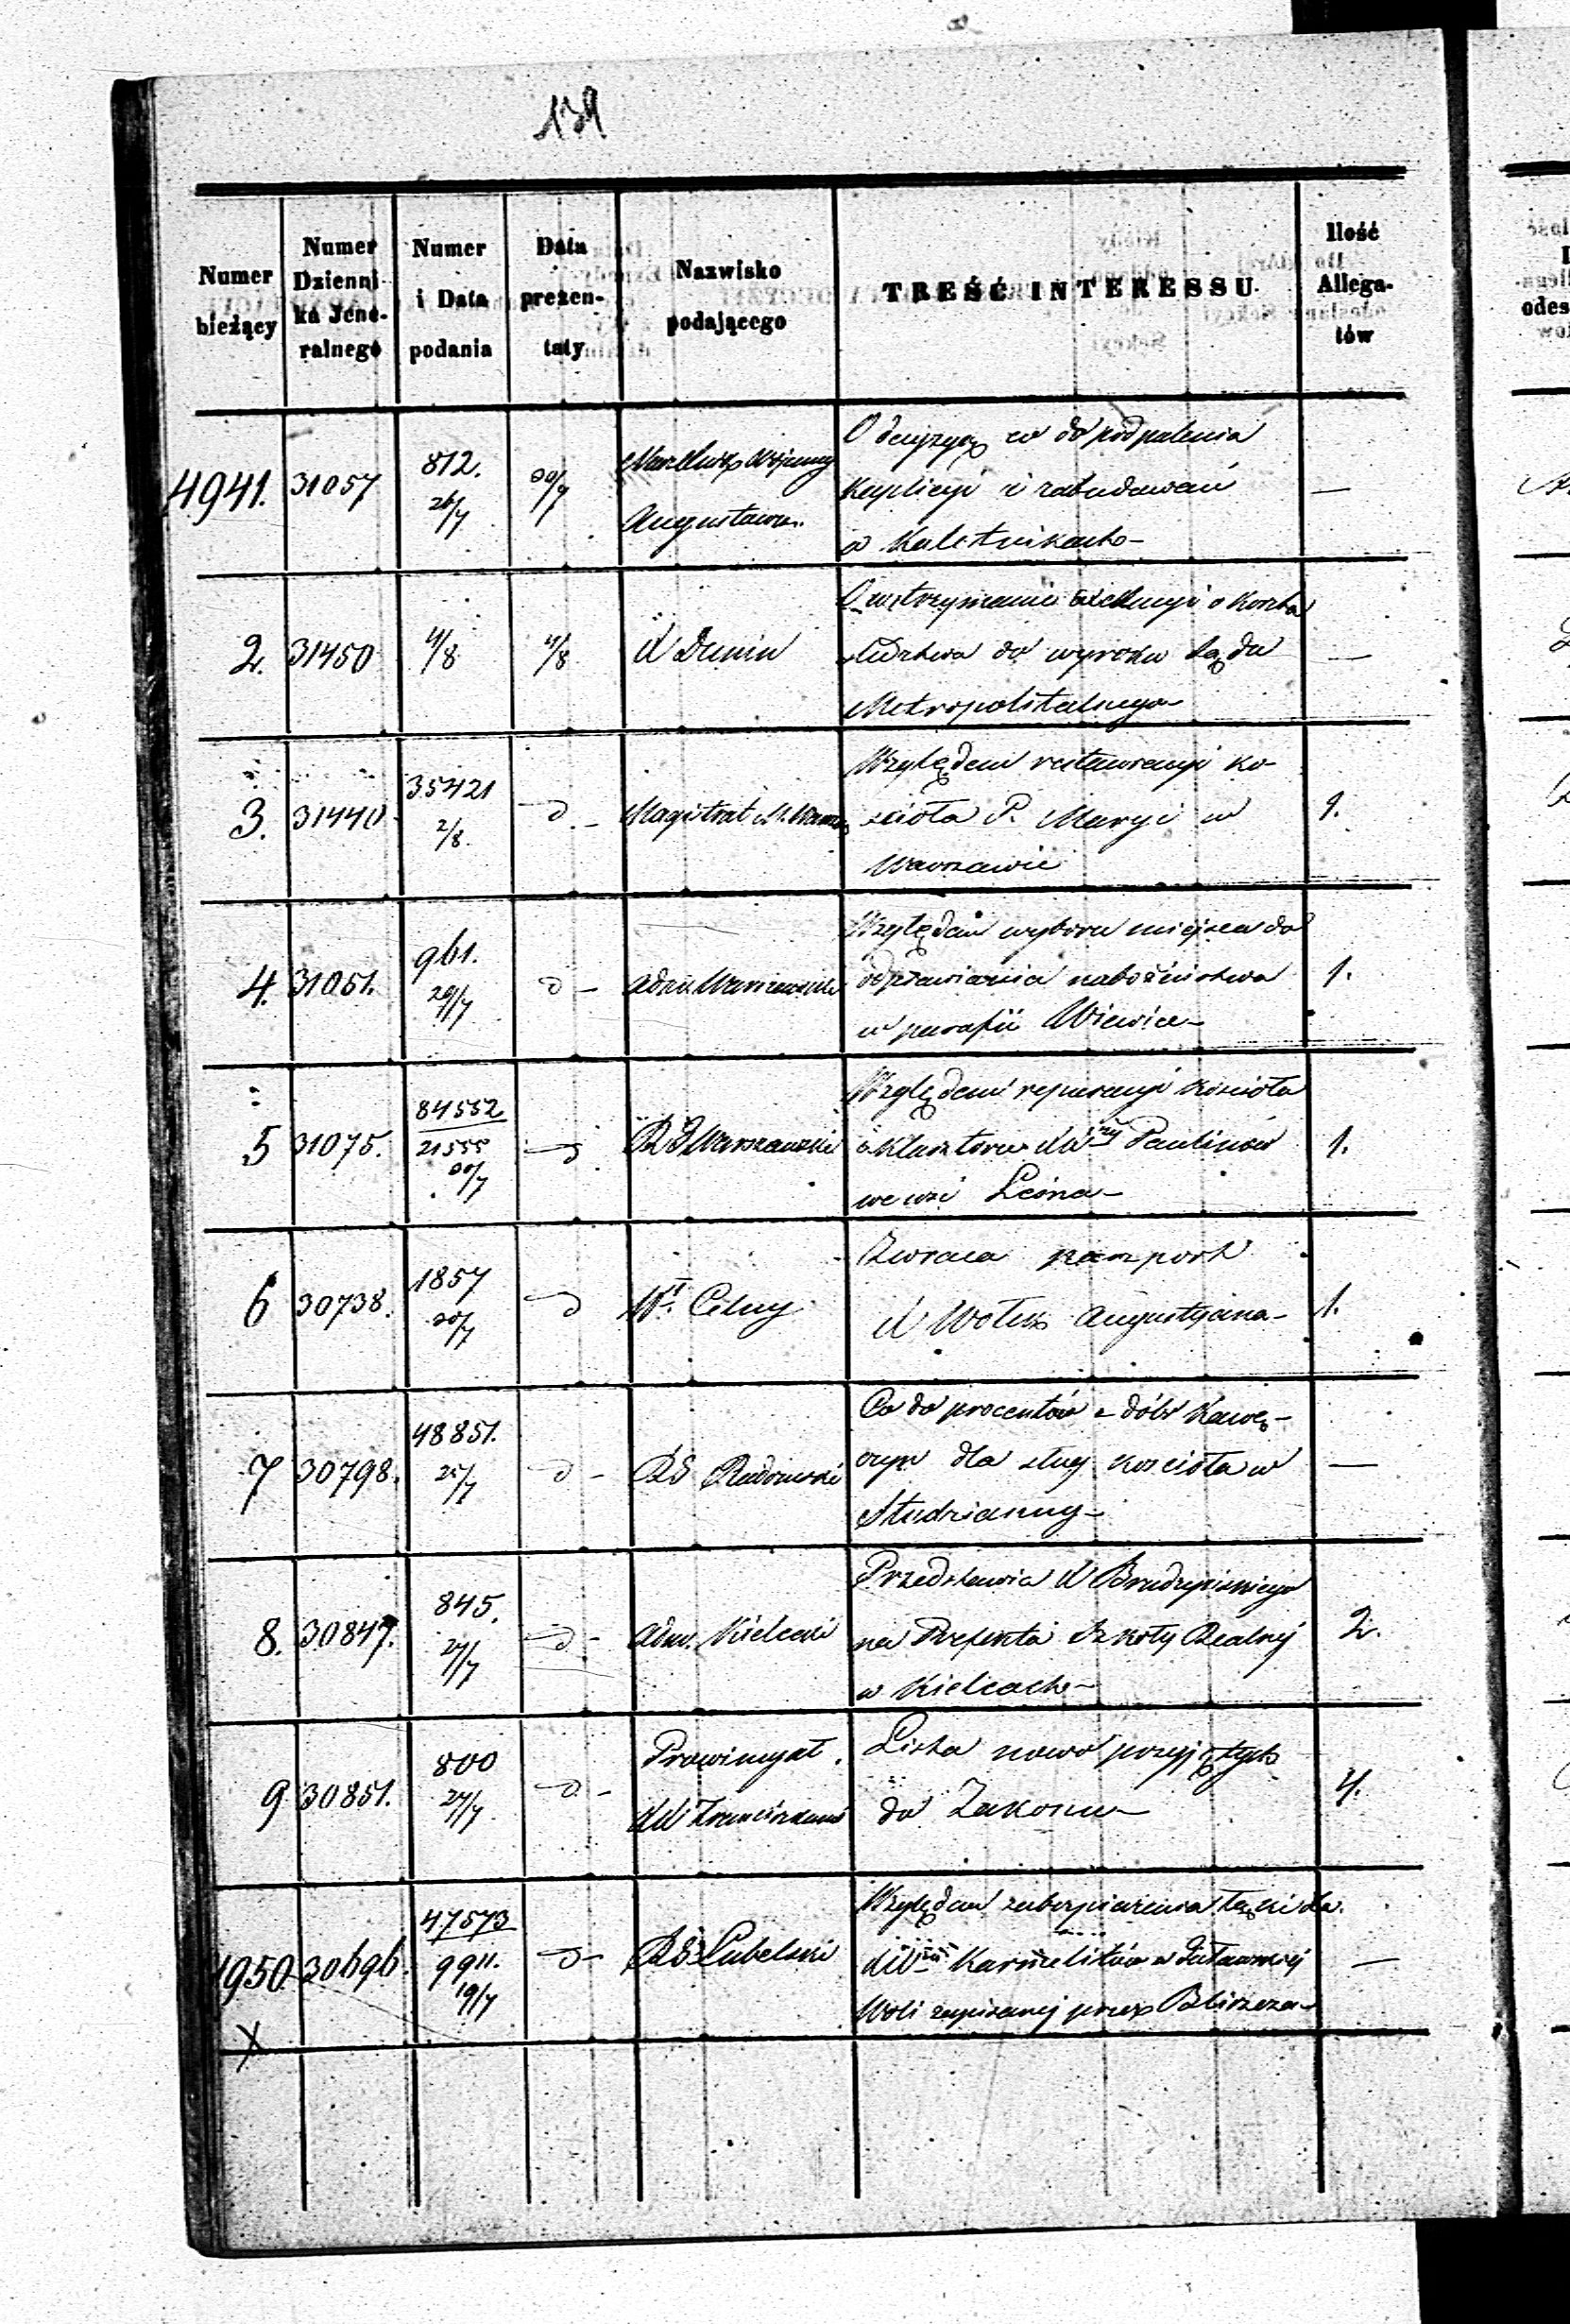 139
Numer bieżący
Numer Dzienni- ka Jene- ralnego
Numer i Data podania
Data prezen- taty
Nazwisko podającego
TREŚĆ INTERESSU
Ilość Allega- tów
4941. 31057 812. 26/7 30/7 Naczelnik Wojenny Augustows. O decyzyą co do podpalenia
Kaplicy i zabudowań —
w Kaletnikach—
2. 31450 4/8 4/8 X Dunin O wstrzymanie exekucyi o koszta
śledztwa do wyroku Sądu —
Metropolitalnego—
3. 31440 35421 2/8 d — Magistrat M. Warsz. Względem restauracyi ko-
ścioła P. Maryi w 1.
Warszawie
4. 31051. 961. 29/7 d — Adm Warszawski Względem wyboru miejsca do
odprawiania nabożeństwa 1.
w parafii Wiewiec—
5 31075. 84552 21555 30/7 d RG Warszawski Względem reparacyi kościoła
i klasztoru XX Paulinów 1.
we wsi Leśna—
6 30738. 1857 30/7 d Zwraca paszport
X Augustyana— 1.
7 30798. 48851. 25/7 d — RG Radomski Co do procentów z dóbr Kawę-
czyn dla sług kościoła w —
Studzianny—
8. 30847. 845. 27/7 d — Adm. Kielecki Przedstawia X
na Prefekta Szkoły Realnej 2.
w Kielcach—
9 30851. 800 27/7 d — Prowincyał XX Franciszkanów Lista nowo przyjętych
do Zakonu— 4.
1950 30696. 47573 9911. 19/7 d — RG Lubelski Względem zabezpieczenia
XX Karmelitów w —
Woli zapisanej przez
X